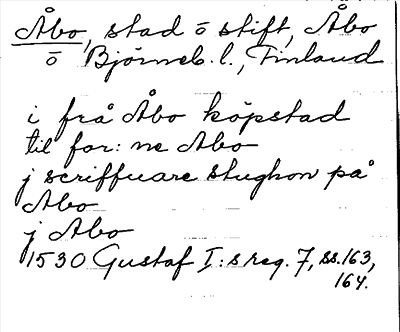 Åbo, stad o stift, Åbo
o Björneb. l., Finland
i frå Åbo köpstad
til for: ne Abo
j scriffuare stughon på
Abo
j Abo
1530 Gustaf I:s reg. 7, ss. 163,
164.